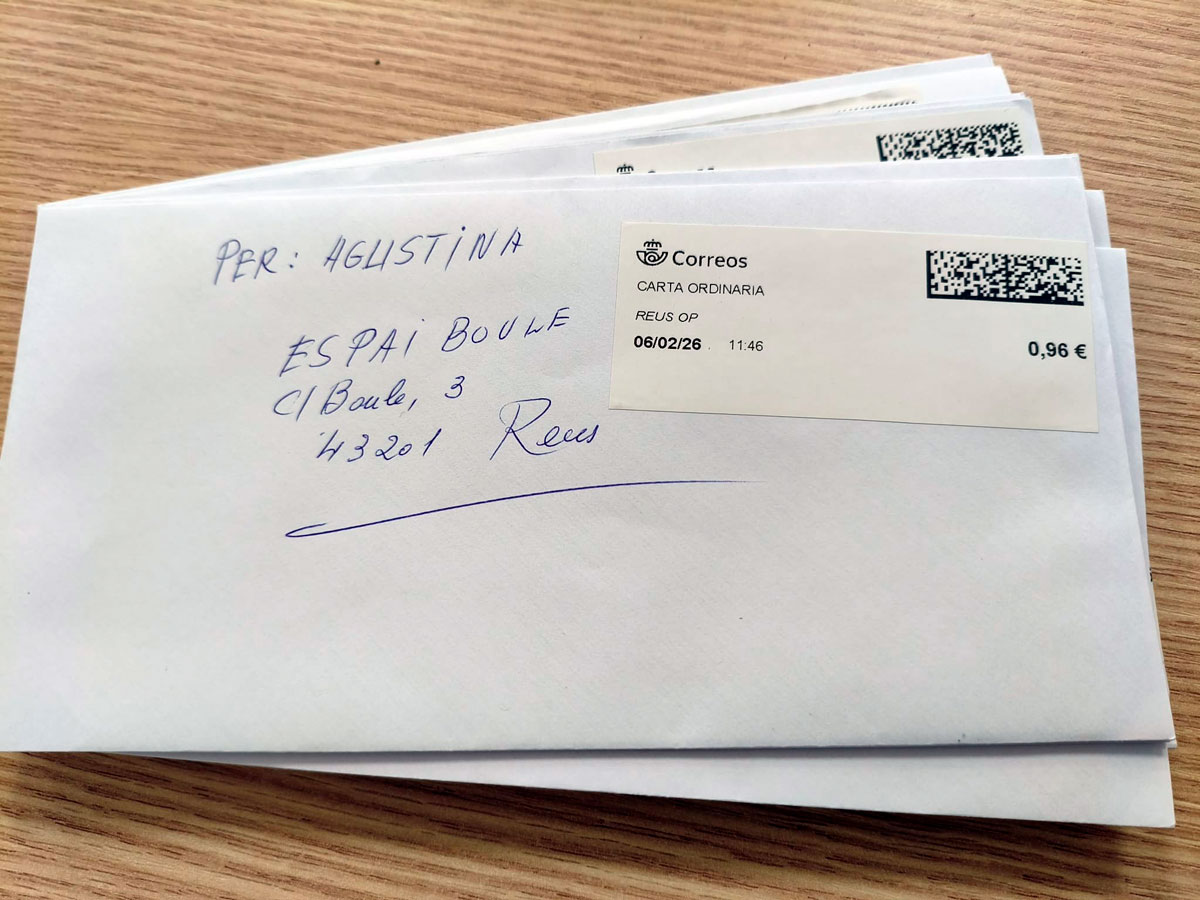 PER: AGUSTINA
ESPAI BOULE
C/ Boule, 3
43201 Reus
Correos
CARTA ORDINARIA
REUS OP
06/02/26 11:46
0,96 €